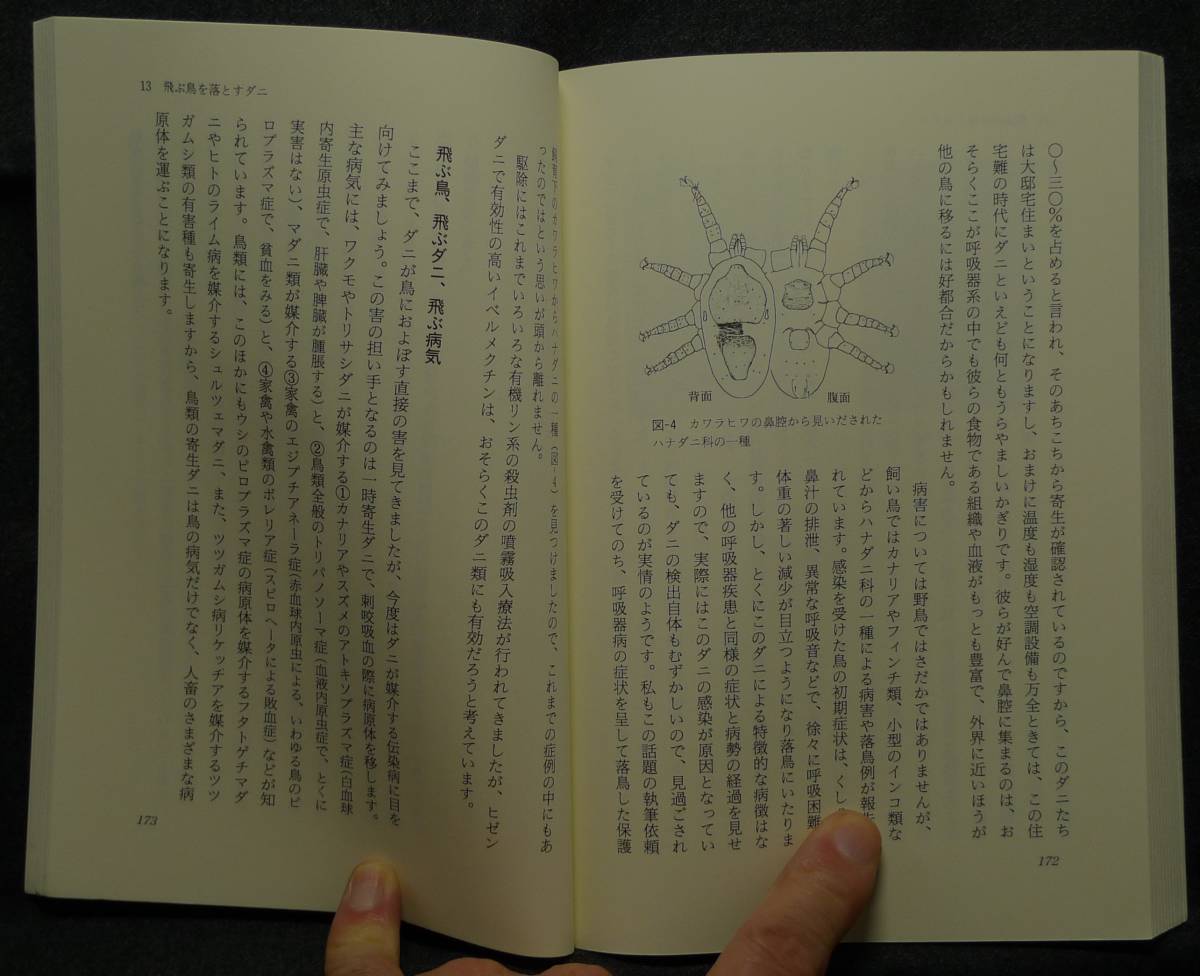 〇～三〇％を占めると言われ、そのあちこちから寄生が確認されているのですから、このダニたち
は大邸宅住まいということになりますし、おまけに温度も湿度も空調設備も万全ときては、この住
宅難の時代にダニといえども何ともうらやましいかぎりです。彼らが好んで鼻腔に集まるのは、お
そらくここが呼吸器系の中でも彼らの食物である組織や血液がもっとも豊富で、外界に近いほうが
他の鳥に移るには好都合だからかもしれません。
背面
腹面
図-4　カワラヒワの鼻腔から見いだされた
ハナダニ科の一種
病害については野鳥ではさだかではありませんが、
飼い鳥ではカナリアやフィンチ類、小型のインコ類な
どからハナダニ科の一種による病害や落鳥例が報告
れています。感染を受けた鳥の初期症状は、くし
鼻汁の排泄、異常な呼吸音などで、徐々に呼吸困難
体重の著しい減少が目立つようになり落鳥にいたりま
す。しかし、とくにこのダニによる特徴的な病徴はな
く、他の呼吸器疾患と同様の症状と病勢の経過を見せ
ますので、実際にはこのダニの感染が原因となってい
ても、ダニの検出自体もむずかしいので、見過ごされ
ているのが実情のようです。私もこの話題の執筆依頼
を受けてのち、呼吸器病の症状を呈して落鳥した保護
172
13　飛ぶ鳥を落とすダニ
飼育下のカワラヒワからハナダニの一種（図-4）を見つけましたので、これまでの症例の中にもあ
ったのではという思いが頭から離れません。
駆除にはこれまでいろいろな有機リン系の殺虫剤の噴霧吸入療法が行われてきましたが、ヒゼン
ダニで有効性の高いイベルメクチンは、おそらくこのダニ類にも有効だろうと考えています。
飛ぶ鳥、飛ぶダニ、飛ぶ病気
ここまで、ダニが鳥におよぼす直接の害を見てきましたが、今度はダニが媒介する伝染病に目を
向けてみましょう。この害の担い手となるのは一時寄生ダニで、刺咬吸血の際に病原体を移します。
主な病気には、ワクモやトリサシダニが媒介する①カナリアやスズメのアトキソプラズマ症（白血球
内寄生原虫症で、肝臓や脾臓が腫脹する）と、②鳥類全般のトリパノソーマ症（血液内原虫症で、とくに
実害はない）、マダニ類が媒介する③家禽のエジプチアネーラ症（赤血球内原虫による、いわゆる鳥のピ
ロプラズマ症で、貧血をみる）と、④家禽や水禽類のボレリア症（スピロヘータによる敗血症）などが知
られています。鳥類には、このほかにもウシのピロプラズマ症の病原体を媒介するフタトゲチマダ
ニやヒトのライム病を媒介するシュルツェマダニ、また、ツツガムシ病リケッチアを媒介するツツ
ガムシ類の有害種も寄生しますから、鳥類の寄生ダニは鳥の病気だけでなく、人畜のさまざまな病
原体を運ぶことになります。
173